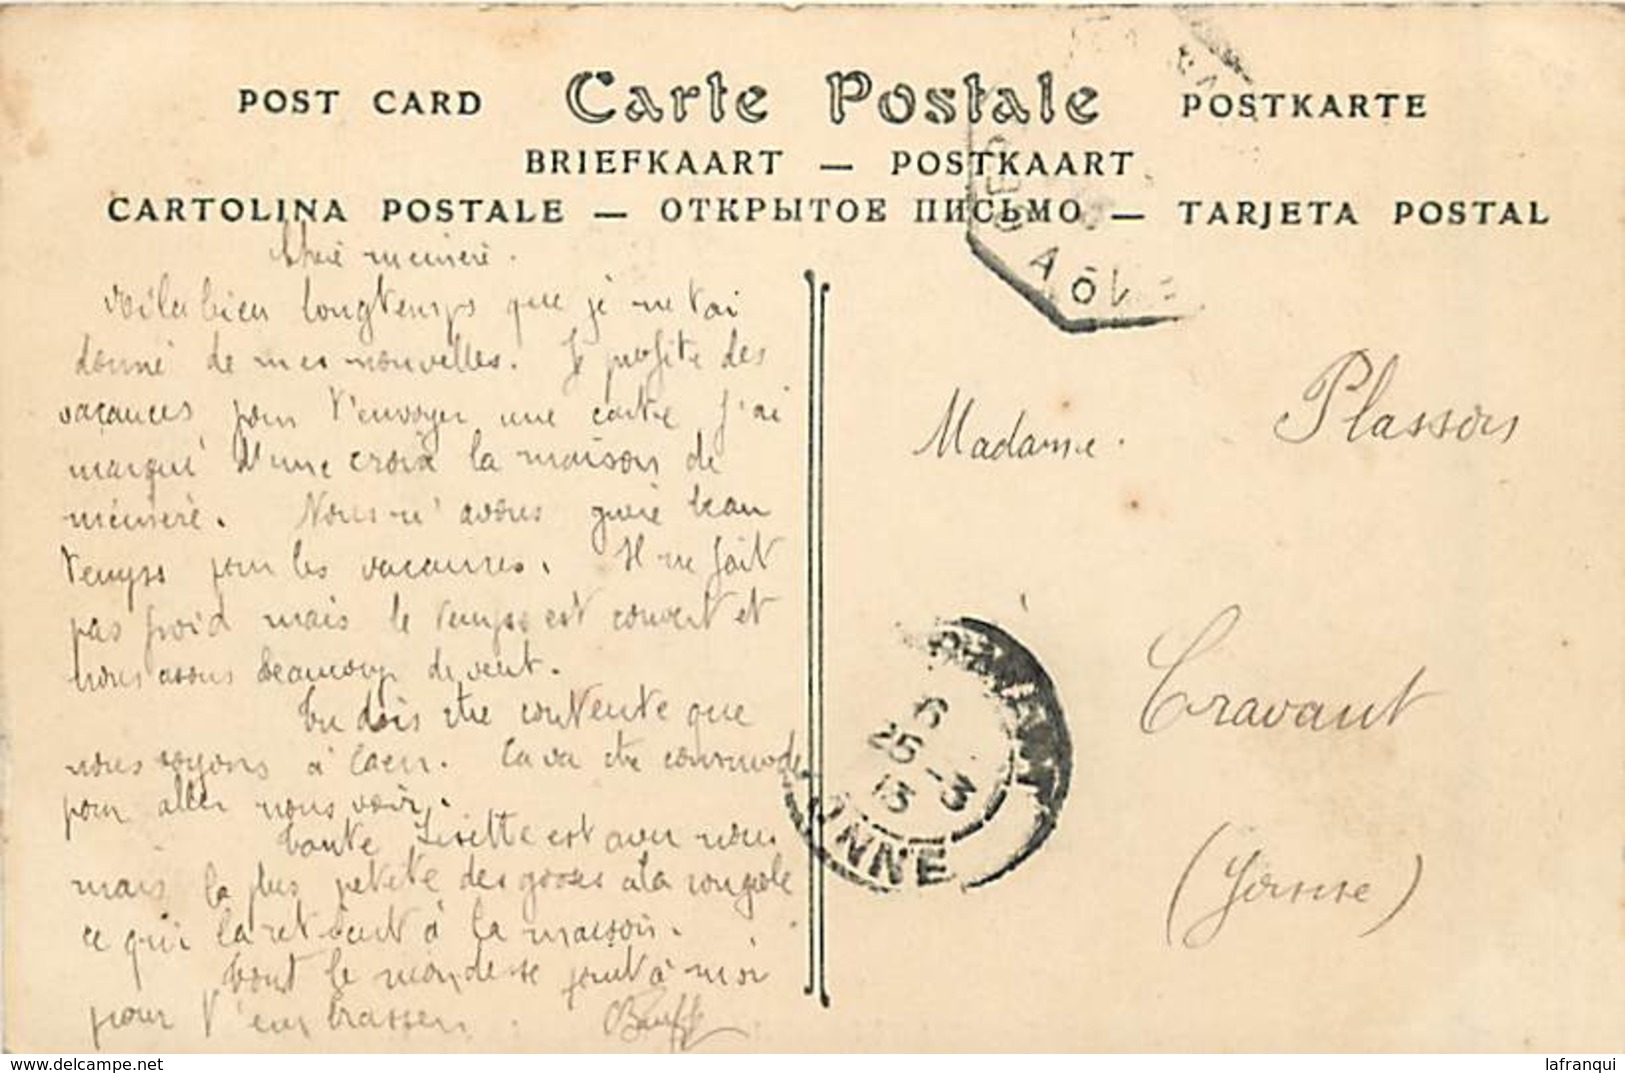 POST CARD Carte Postale POSTKARTE
BRIEFKAART — POSTKAART
CARTOLINA POSTALE — ОТКРЫТОЕ ПИСЬМО — TARJETA POSTAL
Chère mémère.
Voila bien longtemps que je ne t'ai
donné de mes nouvelles. Je profite des
vacances pour t'envoyer une carte j'ai
marqué d'une croix la maison de
mémère. Nous n'avons guère beau
temps pour les vacances. Il ne fait
pas froid mais le temps est couvert et
nous avons beaucoup de vent.
Tu dois être contente que
nous soyons à Caen. Ca va être commode
pour aller nous voir.
Tante Lisette est avec nous
mais la plus petite des gosses a la rougeole
ce qui la retient à la maison.
Tout le monde se joint à moi
pour t'embrasser.
Madame Plassons
Cravant
(Yonne)
CRAVANT
6
25-3
13
YONNE
lafranqui